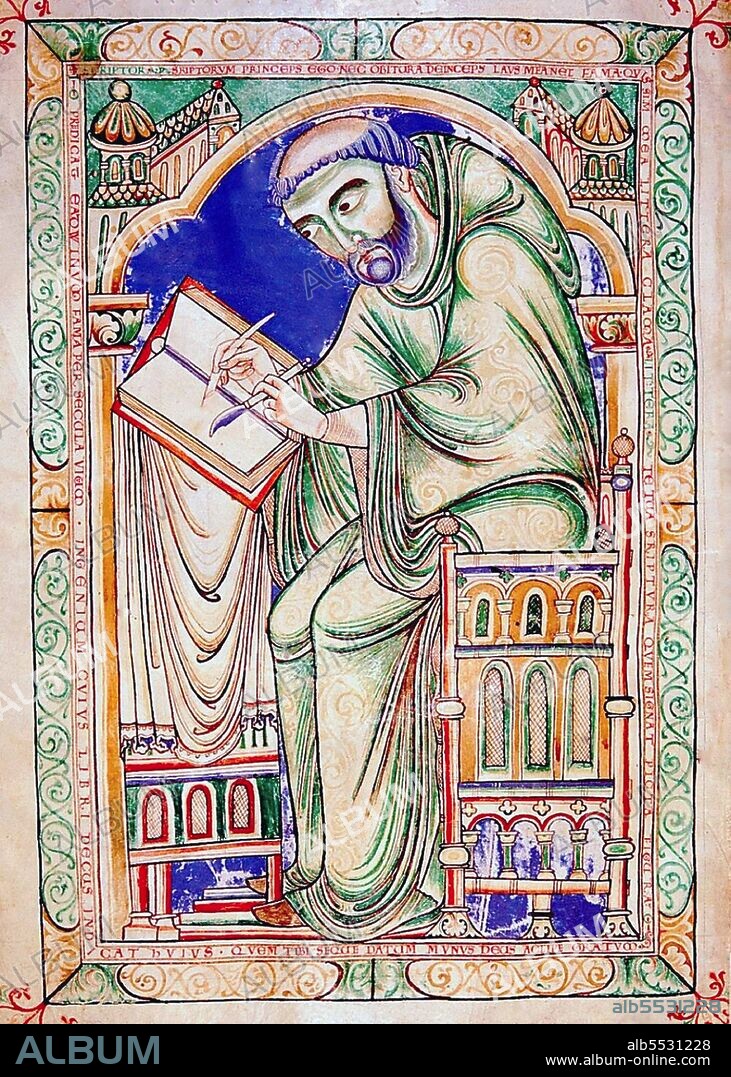 SCRIPTOR SCRIPTORUM PRINCEPS EGO NEC OBITURA DEINCEPS LAUS MEA NEC FAMA QUIS
SIM MEA LITTERA CLAMA LITTERA TE TUA SCRIPTURA QUEM SIGNAT PICTA FIGURA
PREDICAT EADWINUM FAMA PER SECULA VIVUM INGENIUM CUIUS LIBRI DECUS IND
CAT HUIUS QUEM TIBI SEQUE DATUM MUNUS DEUS ACCIPE GRATUM
ALBUM
alb5531228
ALBUM
alb5531228
www.album-online.com